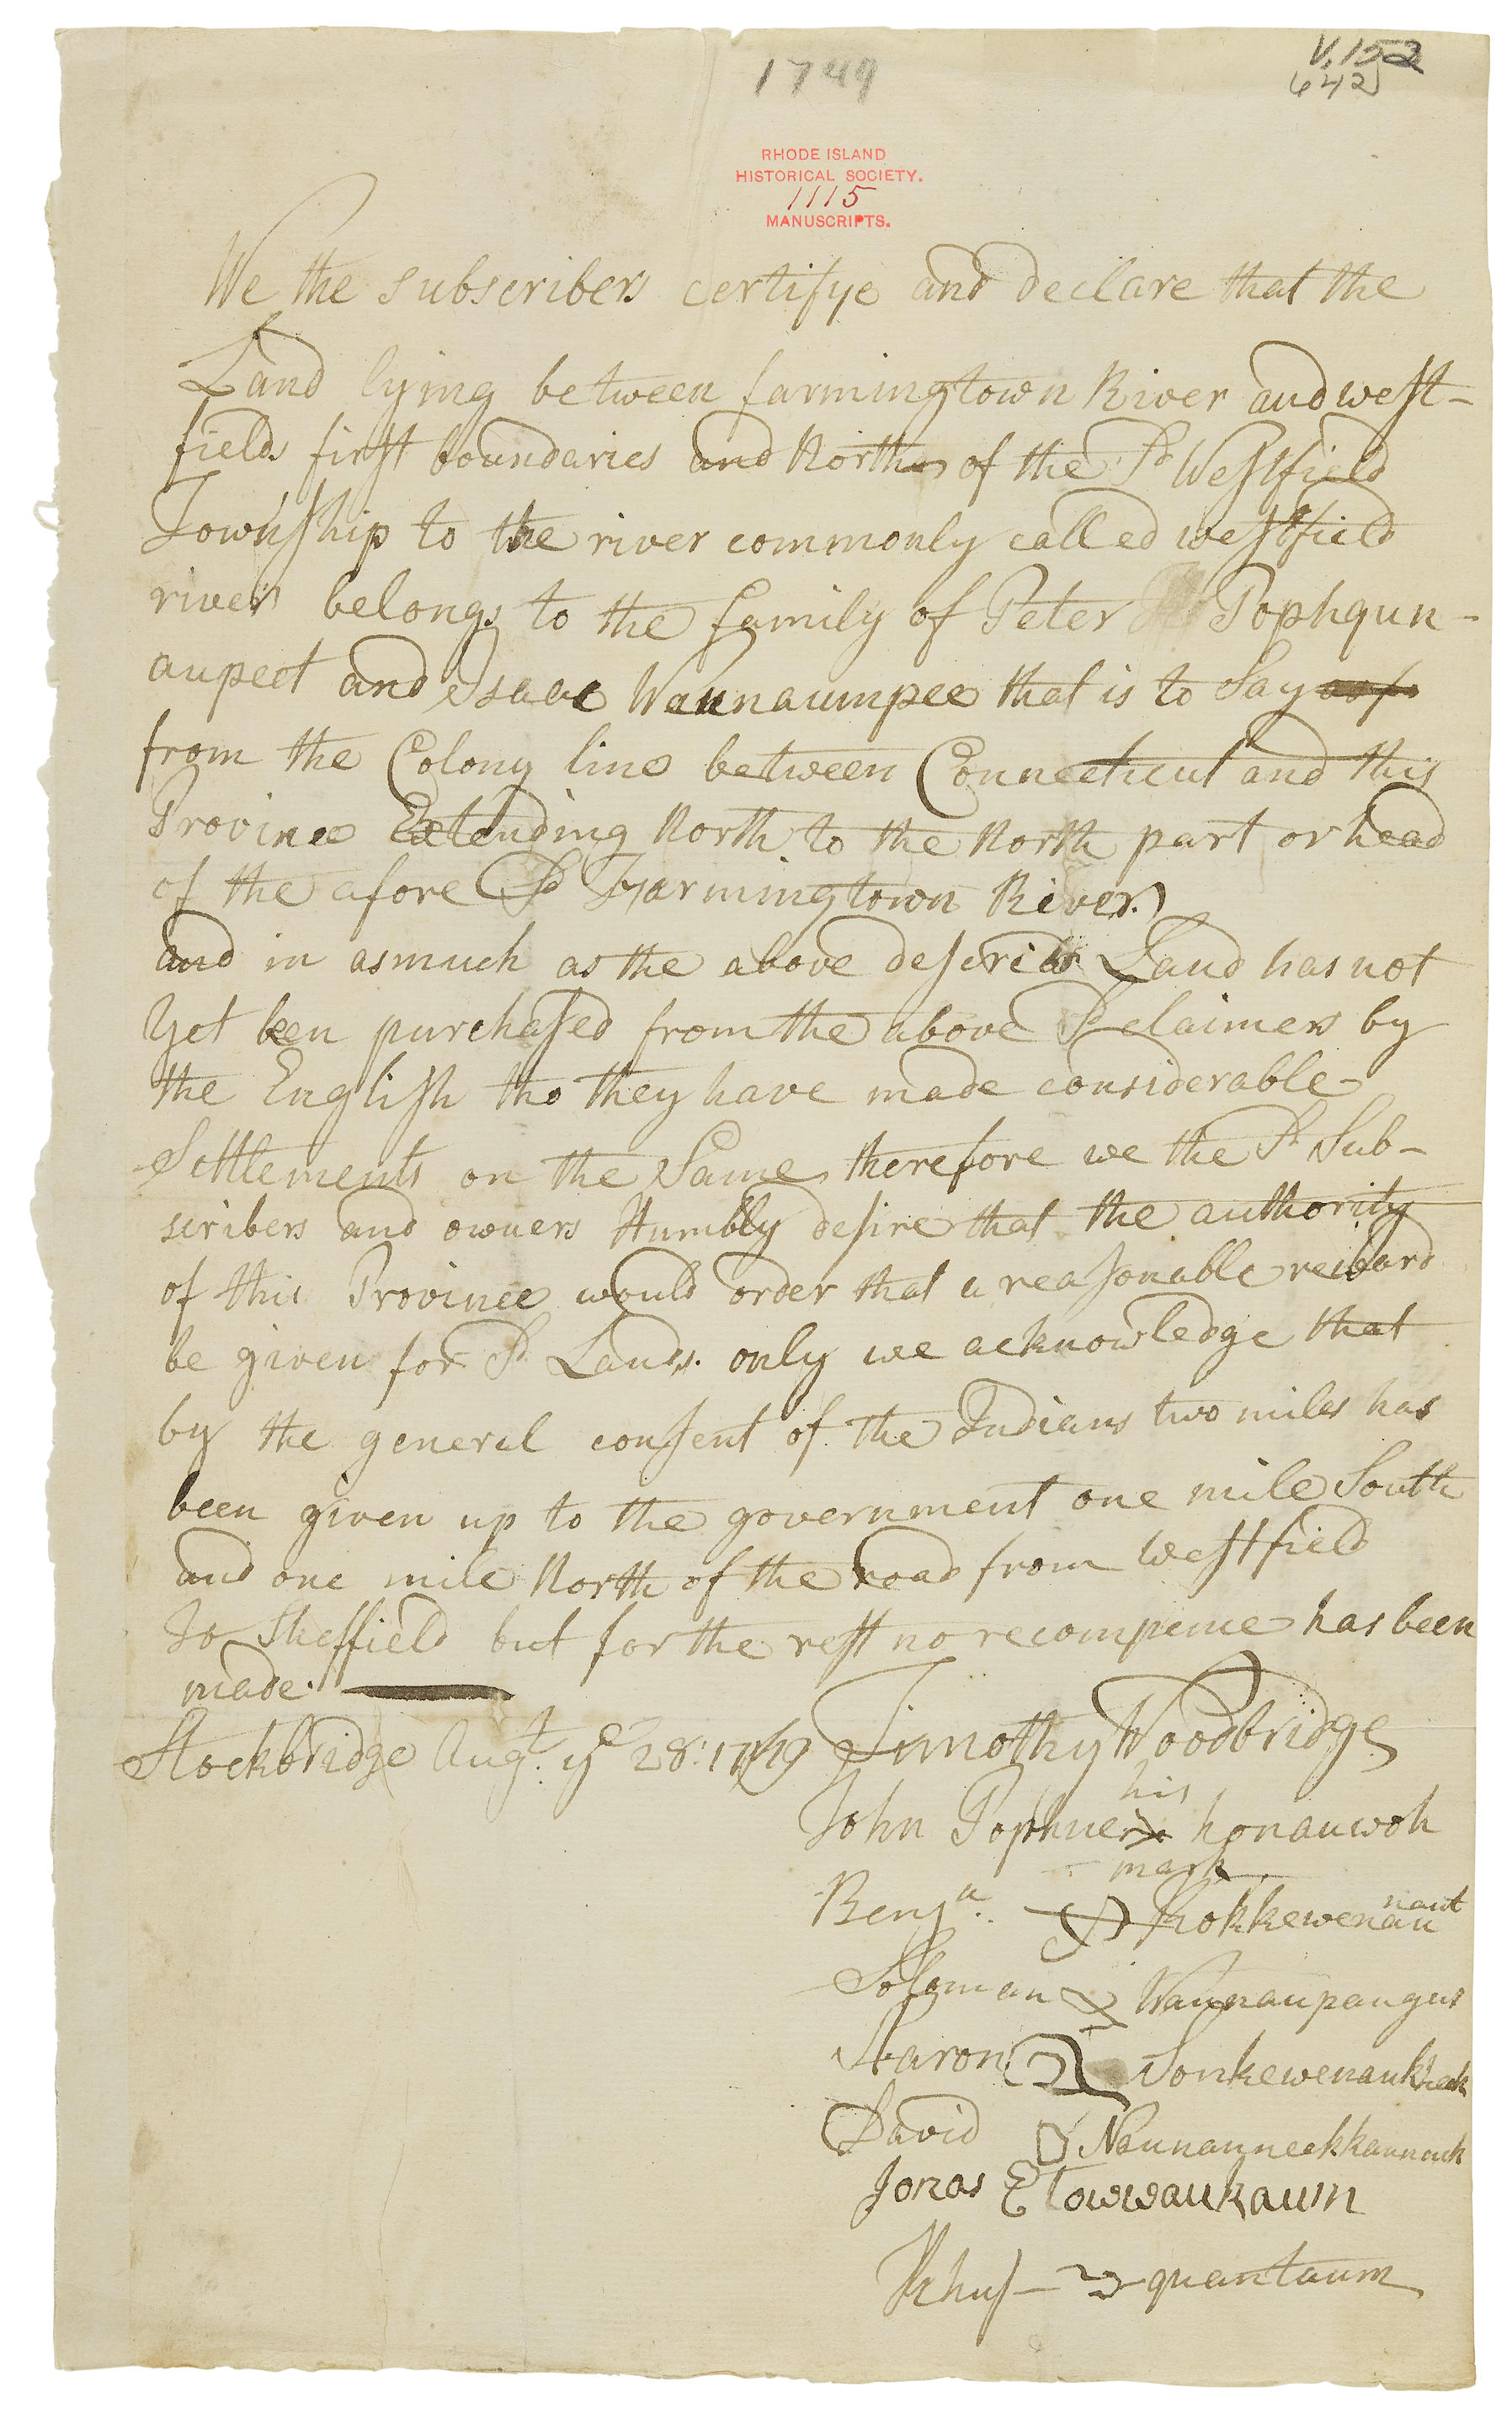 1749
V.152
642
RHODE ISLAND
HISTORICAL SOCIETY.
1115
MANUSCRIPTS.
We the subscribers certifye and declare that the
Land lying between farmingtown River and west-
field first boundaries and North of the Sd Westfield
Township to the river commonly called westfield
river belongs to the family of Peter Pophqun-
aupeet and Isaac Waunaumpee that is to Say
from the Colony line between Connecticut and this
Province Extending North to the North part or head
of the afore Sd Farmingtown River
and in asmuch as the above describd Land has not
Yet been purchased from the above Sd claimers by
the English tho they have made considerable
Settlements on the Same, therefore we the Sd Sub-
scribers and owners Humbly desire that the authority
of this Province would order that a reasonable reward
be given for Sd Lands. only we acknowledge that
by the general consent of the Indians two miles has
been given up to the government one mile South
and one mile North of the road from Westfield
to Sheffield but for the rest no recompence has been
made.
Stockbridge Augt. ye 28: 1749 Timothy Woodbridge
his
John Pophue honauwoh
mark
Benja. Kokkewenau
naut
Soloman Waunaupaugus
Aaron Sonkewenaukheek
David Naunauneekkaunuck
Jonas Etowwaukaum
quantaum